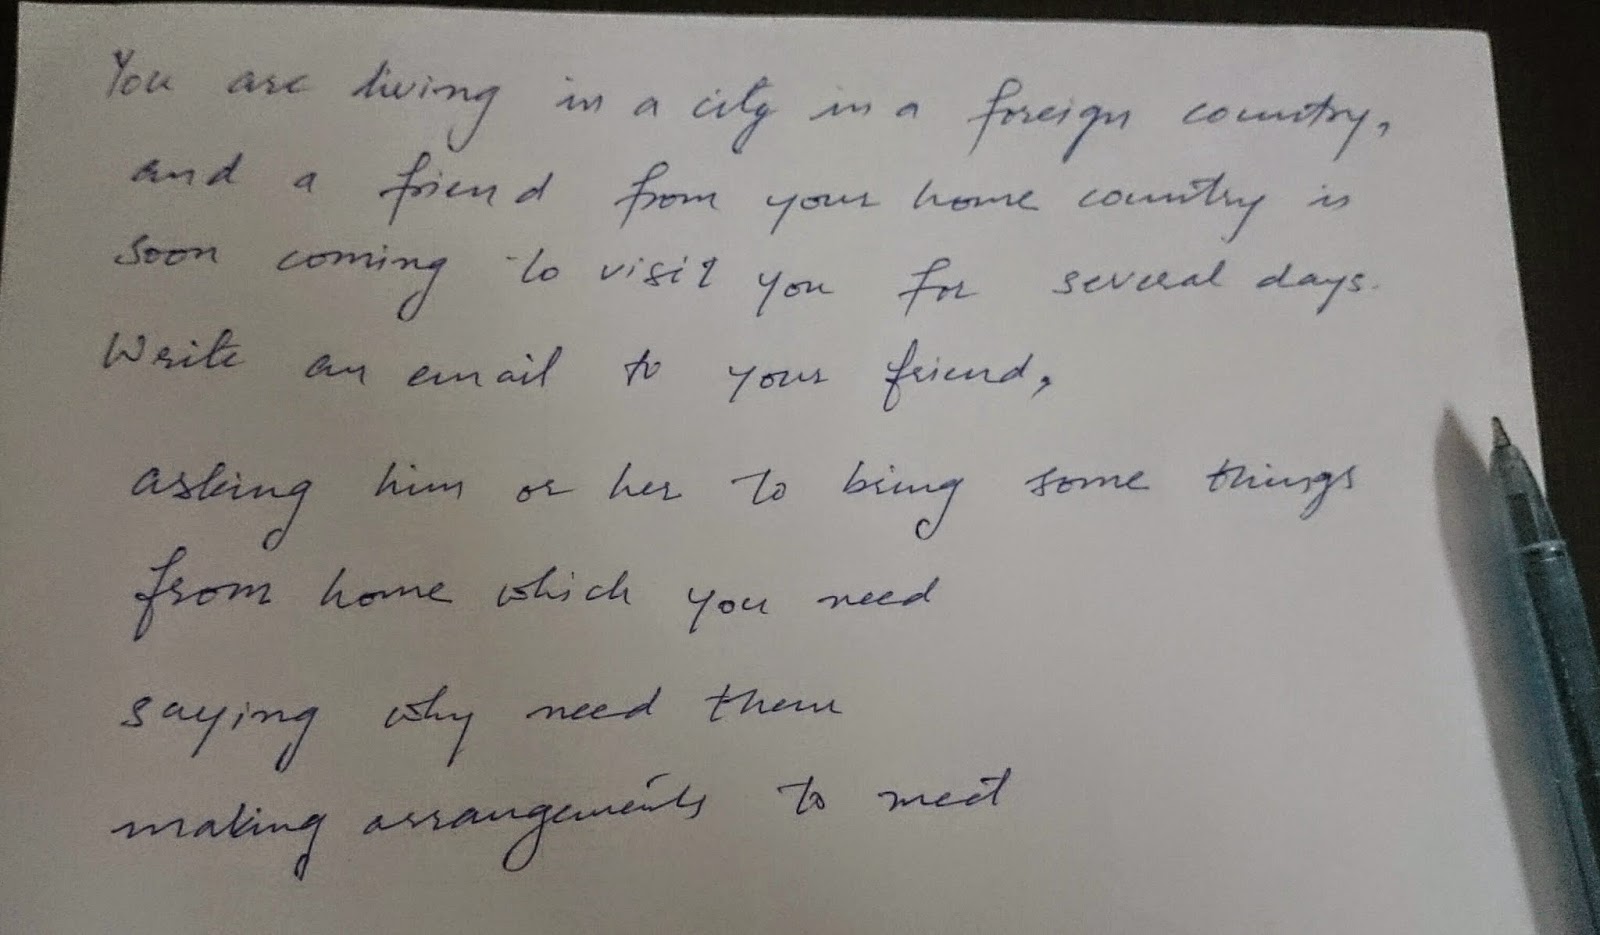 You are living in a city in a foreign country,
and a friend from your home country is
soon coming to visit you for several days.
Write an email to your friend,
asking him or her to bring some things
from home which you need
saying why need them
making arrangements to meet